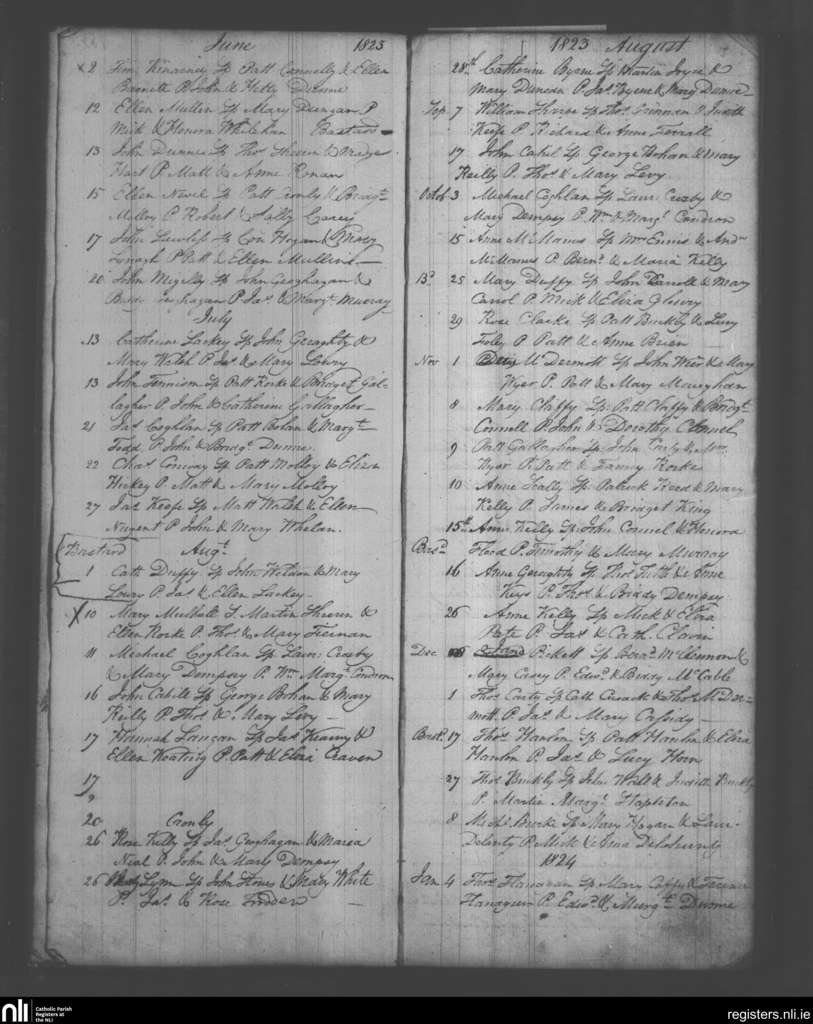 June 1823
x 2 Tim Kinarney Sp Patt Connolly & Ellen
Barnett P. John & Kitty Dunne
12 Ellen Mullin Sp Mary Duncan P
Mick & Honora Whelehan Bastard
13 John Dunne Sp Thos & Madge
Hart P Matt & Anne Ronan
15 Ellen Nevil Sp Patt Cronly & Bridgt
Molloy P Robert & Sally Carey
17 John Sp Con Hogan & Mary
Lynagh P Patt & Ellen Mullins
20 John Sp John Geoghagan &
P Jas & Margt Murray
July
13 Catherine Lackey Sp John Geraghty &
Mary Walsh P Jas & Mary Lowry
13 John Sp Patt Rorke & Bridget Gal-
lagher P. John & Catherine Gallagher
21 Jas Coghlan Sp Patt Bolan & Margt
Todd P John & Bridgt Dunne
22 Chas Conway Sp Patt Molloy & Eliza
Hickey P Matt & Mary Molloy
27 Jas Keefe Sp Matt Walsh & Ellen
Nugent P John & Mary Whelan.
Bastard Augt
1 Cath Duffy Sp John Weldon & Mary
Lowry P Jas & Ellen Lackey
X 10 Mary S. Martin &
Ellen Rorke P Thos & Mary
11 Michael Coghlan Sp Laur: Crosby
& Mary Dempsey P. Wm Margt Condron
16 John Cahill Sp George Bohan & Mary
Reilly P Thos & Mary Levy
17 Hannah Sp Jas Kearny &
Ellen Keating P. Patt & Eliza Craven
17
20 Cronly
26 Rose Kelly Sp Jas Geoghagan & Maria
Neal P. John & Maria Dempsey
26 Lynn Sp John & Mary White
P. Jas & Rose
1823 August
28th Catherine Byrne Sp Martin Joyce &
Mary Duncan P Jas Byrne & Mary Dunne
Sep 7 William Sp Thos Grinnan & Judith
Keefe P Richard & Anne Farrall
17 John Cahil Sp George Bohan & Mary
Reilly P. Thos & Mary Levy.
Octob 3 Michael Coghlan Sp Laur Crosby &
Mary Dempsey P. Wm & Margt Condron
15 Anne McManus Sp Wm Ennis & Andw
McManus P Bernd & Maria Kelly
Bd 25 Mary Duffy Sp John Carroll & Mary
Carrol P. Mick & Eliza
29 Rose Clarke Sp Patt Buckly & Lucy
Foley P Patt & Anne Brien
Nov 1 McDermott Sp John Wier & Mary
Wyer P. Patt & Mary
8 Mary Claffy Sp Patt Claffy & Bridgt
Connell P. John & Dorothy Connel
9 Patt Gallagher Sp John & Mary
Wyer P. Patt & Fanny Rorke
10 Anne Scally Sp Patrick & Mary
Kelly P. James & Bridget King
15th Anne Kelly Sp John Connel & Honora
Basd Flood P. Timothy & Mary Murray
16 Anne Geraghty Sp Thos & Anne
Keys P. Thos & Biddy Dempsey
26 Anne Kelly Sp Mick & Eliza
P Jas & Cath. Clavin
Dec Pickett Sp Bernd McClennon &
Mary Casey P. Edwd & Biddy McCabe
1 Thos Carty Sp Cath Cusack & Thos McDer-
mott. P. Jas & Mary Cassidy
Bast. 17 Thos Hanlon Sp Patt Hanlon & Eliza
Hanlon P. Jas & Lucy Horn
27 Thos Buckly Sp John Wall & Judith Buckly
P. Martin Margt Stapleton
8 Michl Burke S Mary Hogan & Laur.
Delanty P. Mick & Delahunty
1824
Jan 4 Thos Flanagan Sp Mary &
Flanagan P. Edwd & Margt Dunne
nli Catholic Parish Registers at the NLI
registers.nli.ie